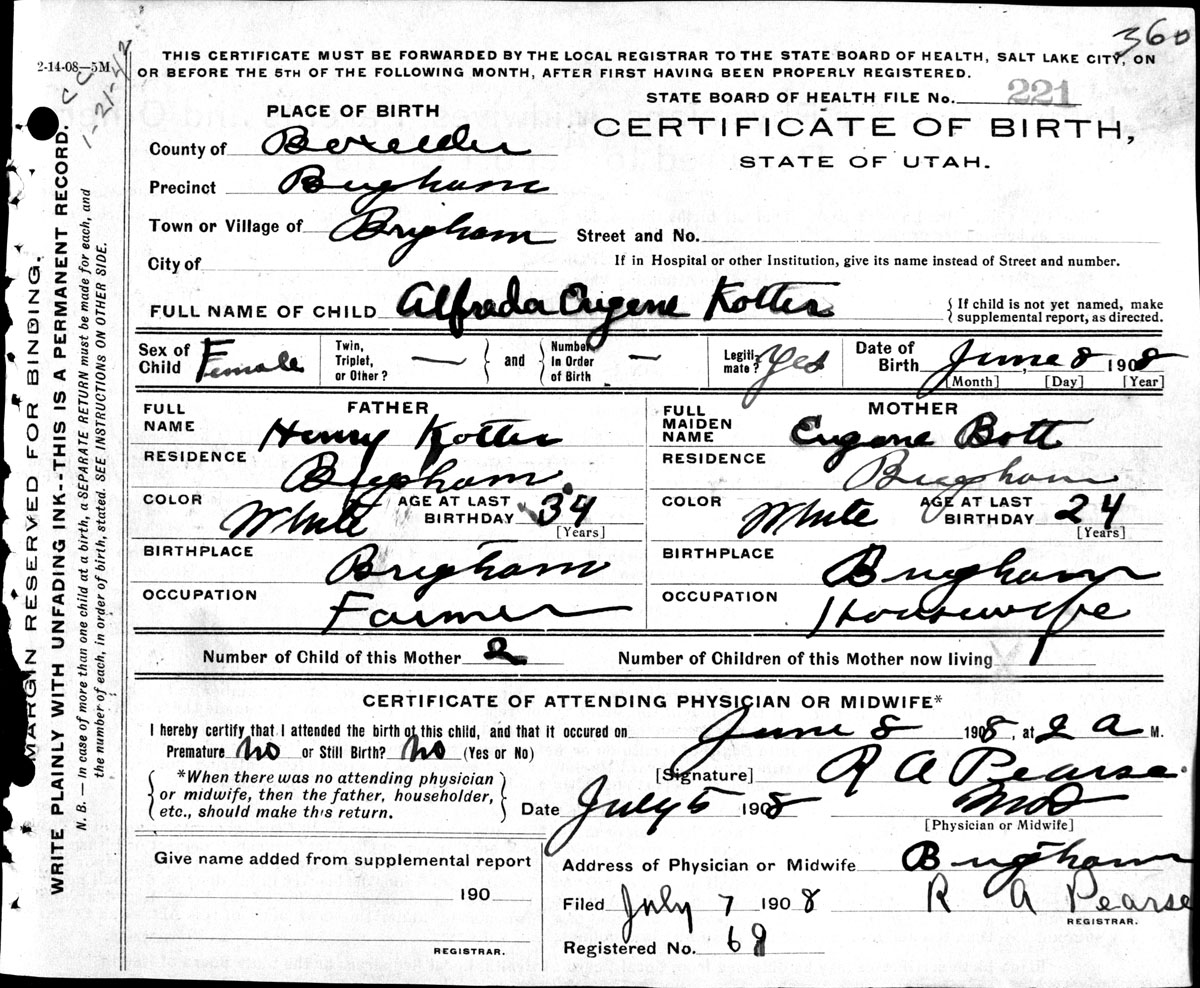 360
2-14-08—5M
THIS CERTIFICATE MUST BE FORWARDED BY THE LOCAL REGISTRAR TO THE STATE BOARD OF HEALTH, SALT LAKE CITY, ON
OR BEFORE THE 5TH OF THE FOLLOWING MONTH, AFTER FIRST HAVING BEEN PROPERLY REGISTERED.
STATE BOARD OF HEALTH FILE No. 221
CERTIFICATE OF BIRTH,
STATE OF UTAH.
PLACE OF BIRTH
County of Boxelder
Precinct Brigham
Town or Village of Brigham
Street and No.
City of
If in Hospital or other Institution, give its name instead of Street and number.
FULL NAME OF CHILD Alfreda Eugene Kotter
{ If child is not yet named, make
supplemental report, as directed.
Sex of Child Female
Twin, Triplet, or Other? —
and
Number in Order of Birth —
Legiti-mate? Yes
Date of Birth June 8 1908
[Month] [Day] [Year]
FATHER
FULL NAME Henry Kotter
RESIDENCE Brigham
COLOR White AGE AT LAST BIRTHDAY 34
[Years]
BIRTHPLACE Brigham
OCCUPATION Farmer
MOTHER
FULL MAIDEN NAME Eugene Bott
RESIDENCE Brigham
COLOR White AGE AT LAST BIRTHDAY 24
[Years]
BIRTHPLACE Brigham
OCCUPATION Housewife
Number of Child of this Mother 2
Number of Children of this Mother now living 1
CERTIFICATE OF ATTENDING PHYSICIAN OR MIDWIFE*
I hereby certify that I attended the birth of this child, and that it occured on June 8 1908, at 2 A M.
Premature No or Still Birth? No (Yes or No)
*When there was no attending physician
or midwife, then the father, householder,
etc., should make this return.
[Signature] R A Pearse
MD
[Physician or Midwife]
Date July 5 1908
Give name added from supplemental report
190
REGISTRAR.
Address of Physician or Midwife Brigham
Filed July 7 1908 R A Pearse
REGISTRAR.
Registered No. 68
MARGIN RESERVED FOR BINDING.
WRITE PLAINLY WITH UNFADING INK--THIS IS A PERMANENT RECORD.
N. B.—In case of more than one child at a birth, a SEPARATE RETURN must be made for each, and
the number of each, in order of birth, stated. SEE INSTRUCTIONS ON OTHER SIDE.